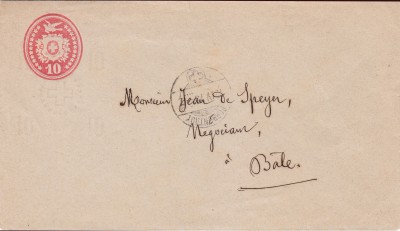 10
Monsieur Jean de Speyer,
Negociant,
à
Bâle.